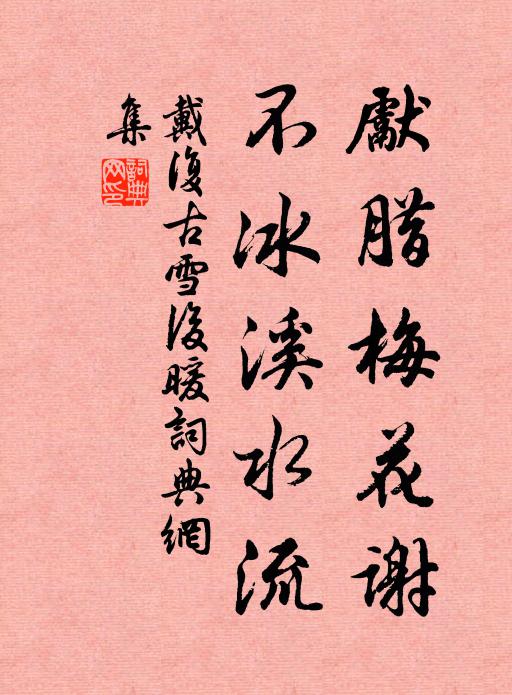 獻腊梅花謝
不冰溪水流
戴復古雪後暖詞典網
集
詞典网印